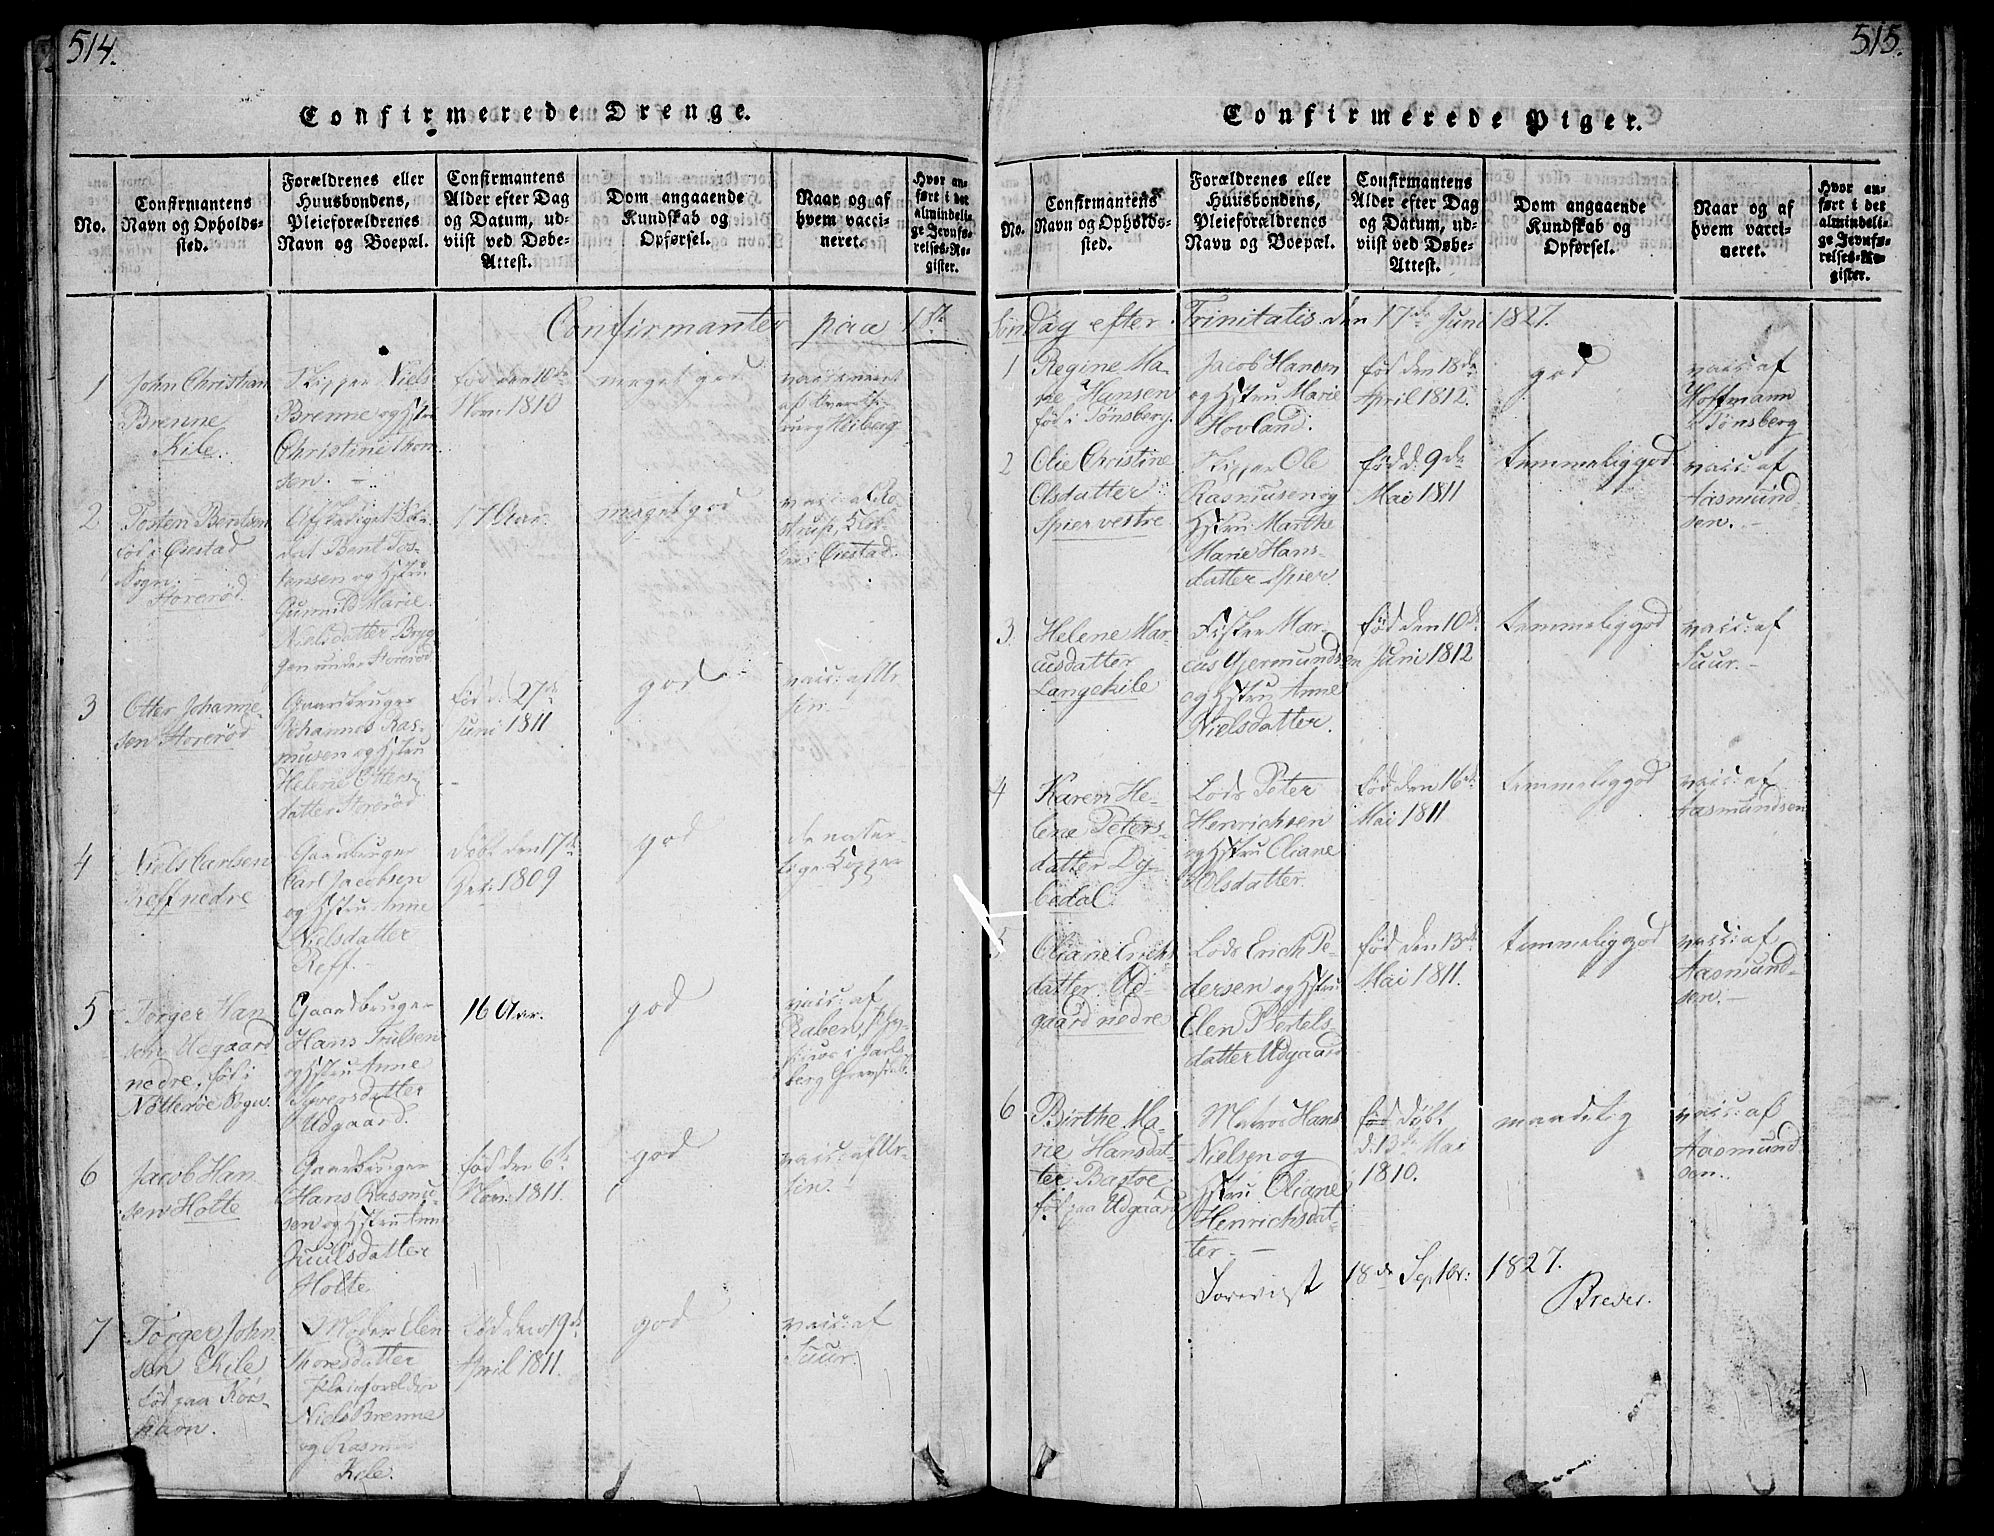 514.
Confirmerede Drenge.
No.
Confirmantens
Navn og Opholds-
sted.
Forældrenes eller
Huusbondens,
Pleieforældrenes
Navn og Boepæl.
Confirmantens
Alder efter Dag
og Datum, ud-
viist ved Døbe-
Attest.
Dom angaaende
Kundskab og
Opførsel.
Naar og af
hvem vacci-
neret.
Hvor an-
ført i det
almindeli-
ge Jevnfø-
relses-Re-
gister.
Confirmanter paa 1st
1
John Christian
Brenne
Kile.
Skipper Niels
Brenne og Hstru
Christine Thom-
sen.
fød den 10de
Nov. 1810
meget god
vaccineret
af
Heiberg
2
Tosten Bentsen
fød i Øiestad
Sogn.
Storerød.
Afskediget Sol-
dat Bent Tos-
tensen og Hstru
Gunnild Marie
Nielsdatter Bryg-
gen under Storerød
17 Aar.
meget god
vacc: af
i Øiestad.
3
Otter Johanne-
sen Storerød
Gaardbruger
Johannes Ras-
musen og Hstru
Helene Otters-
datter Storerød
fød d. 27de
Juni 1811
god
vacc: af Ur-
sin.
4
Niels Carlsen
Reff nedre
Gaardbruger
Carl Jacobsen
og Hstru Anne
Nielsdatter
Reff.
Døbt den 17de
1809
god
de natur-
lige Kopper
5
Torger Han-
sen Udgaard
nedre, fød i
Nøtterøe Sogn.
Gaardbruger
Hans Trulsen
og Hstru Anne
Syversdatter
Udgaard.
16 Aar.
god
vacc: af
Raben, Phy-
sicus i Jarls-
berg Grevskab
6
Jacob Han-
sen Holte
Gaardbruger
Hans Rasmu-
sen og Hstru Anne
Juulsdatter
Holte.
fød den 6te
Nov: 1811.
god
vacc: af Ur-
sin.
7
Torger John-
sen Kile
fød paa Kors-
havn.
Moder Elen
Thoresdatter
Pleieforældre
Niels Brenne
og Rasmus
Kile.
fød den 19de
April 1811.
god
vacc: af
Suur.
515.
Confirmerede Piger.
No.
Confirmantens
Navn og Opholds-
sted.
Forældrenes eller
Huusbondens,
Pleieforældrenes
Navn og Boepæl.
Confirmantens
Alder efter Dag
og Datum, ud-
viist ved Døbe-
Attest.
Dom angaaende
Kundskab og
Opførsel.
Naar og af
hvem vacci-
neret.
Hvor an-
ført i det
almindeli-
ge Jevnfø-
relses-Re-
gister.
Søndag efter Trinitatis den 17de Juni 1827.
1
Regine Ma-
rie Hansen
fød i Tønsberg.
Jacob Hansen
og Hstru Marie
Hovland.
fød den 18de
April 1812.
god
vacc: af
Hoffmann
i Tønsberg
2
Olie Christine
Olsdatter
Spier vestre
Skipper Ole
Rasmusen og
Hstru Marthe
Marie Hans-
datter Spier.
fød d. 9de
Mai 1811
temmelig god
vacc: af
Aasmund-
sen.
3.
Helene Mar-
cusdatter
Langekile
Fisker Mar-
cus Gjermundsen
og Hstru Anne
Nielsdatter.
fød den 10de
Juni 1812
temmelig god
vacc: af
Suur.
4
Karen He-
lene Peters-
datter Dy-
bedal.
Lods Peter
Henrichsen
og Hstru Oliane
Olsdatter.
fød den 16de
Mai 1811
temmelig god
vacc: af
Aasmundsen
5
Oliane Erichs
datter Ud-
gaard nedre
Lods Erich Pe-
dersen og Hstru
Elen Bertels-
datter Udgaard
fød den 13de
Mai 1811.
temmelig god
vacc: af
Aasmund-
sen.
6
Birthe Ma-
rie Hansdat-
ter Bastøe
fød paa Udgaard
Matros Hans
Nielsen og
Hstru Oliane
Henrichsdat-
ter.
fød Døbt
d. 13de Mai
1810.
maadelig
vacc: af
Aasmund
sen.
Foreviist 18de Septbr: 1827.
Breder.